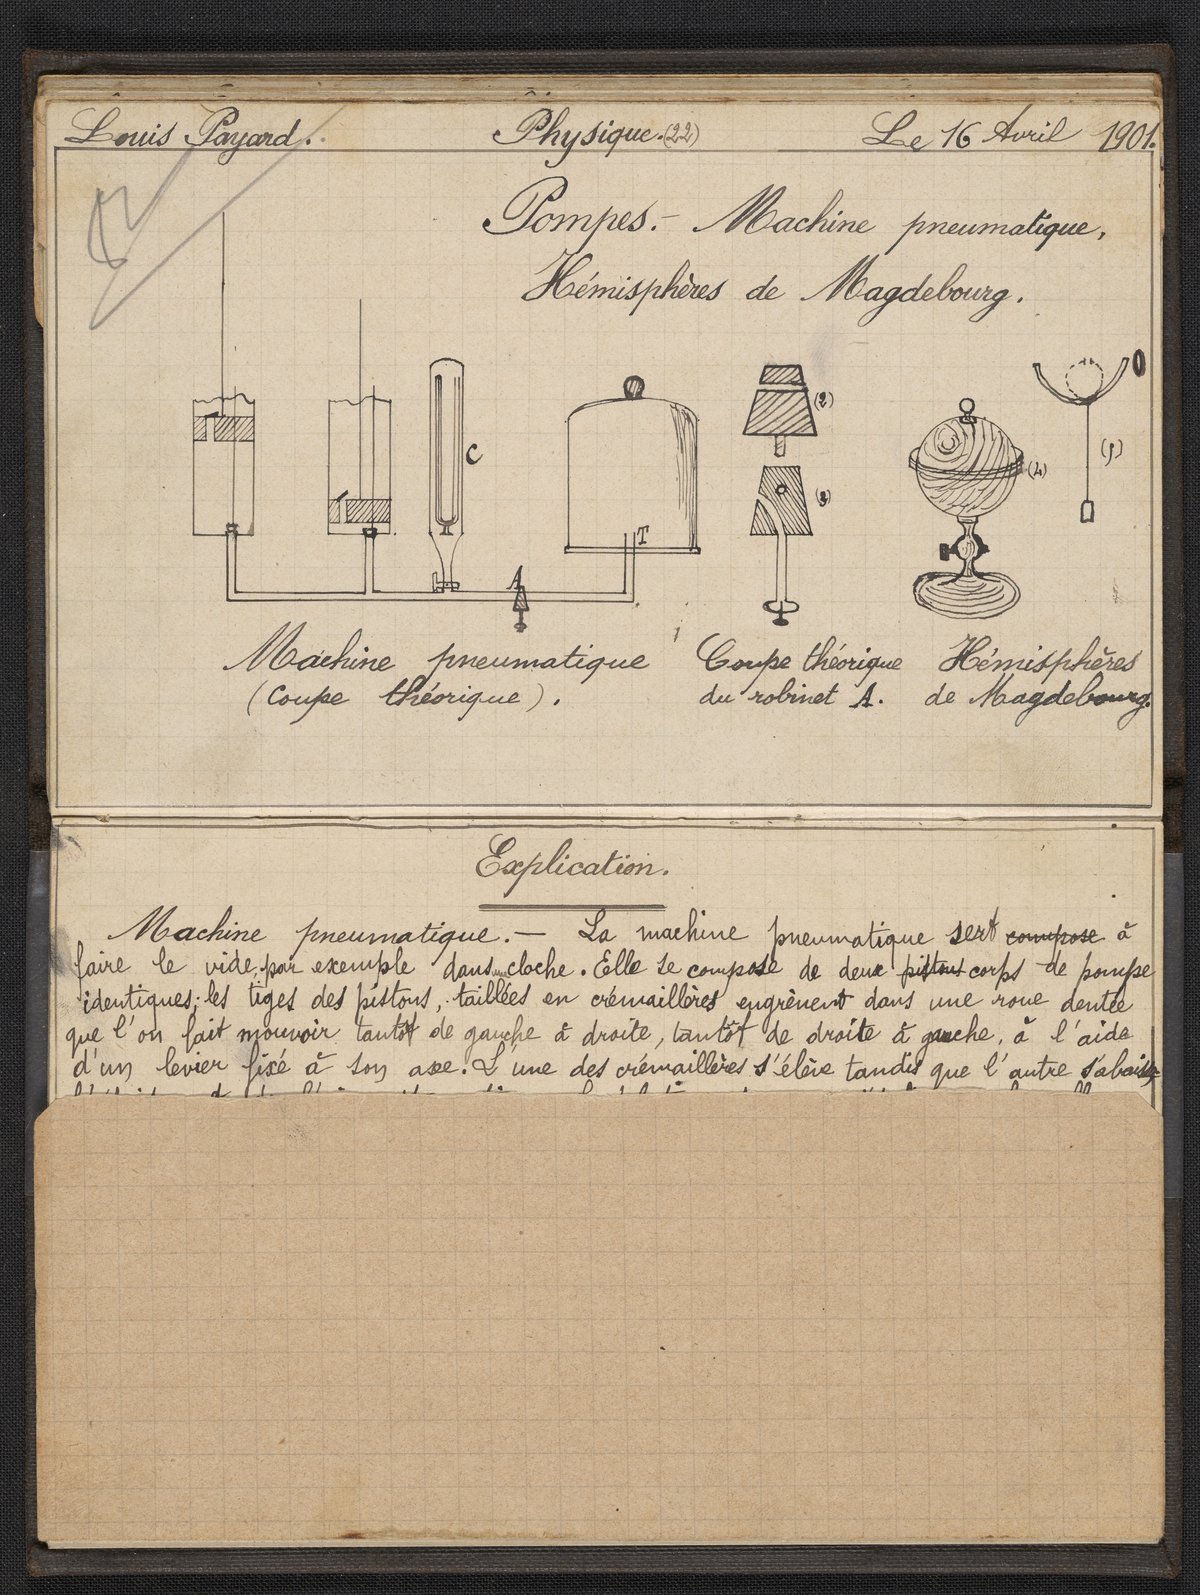 Louis Payard. Physique. (22) Le 16 Avril 1901.
Pompes. - Machine pneumatique,
Hémisphères de Magdebourg.
C
T
A
(2)
(3)
(4)
(5)
Machine pneumatique
(Coupe théorique).
Coupe théorique
du robinet A.
Hémisphères
de Magdebourg.
Explication.
Machine pneumatique. — La machine pneumatique sert compose à
faire le vide, par exemple dans une cloche. Elle se compose de deux pistons corps de pompe
identiques; les tiges des pistons, taillées en crémaillères engrènent dans une roue dentée
que l'on fait mouvoir tantôt de gauche à droite, tantôt de droite à gauche, à l'aide
d'un levier fixé à son axe. L'une des crémaillères s'élève tandis que l'autre s'abaisse